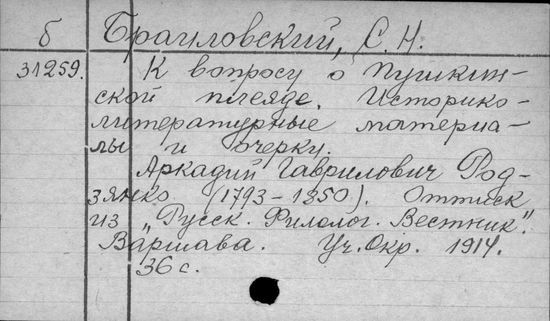 б Браиловский, С. Н.
31259. К вопросу о Пушкин-
ской плеяде. Историко-
литературные материа-
лы и очерку.
Аркадий Гаврилович Род-
зянко (1793-1850). Оттиск
из „Русск. Филолог. Вестник".
Варшава. Уч. Окр. 1914.
36 с.